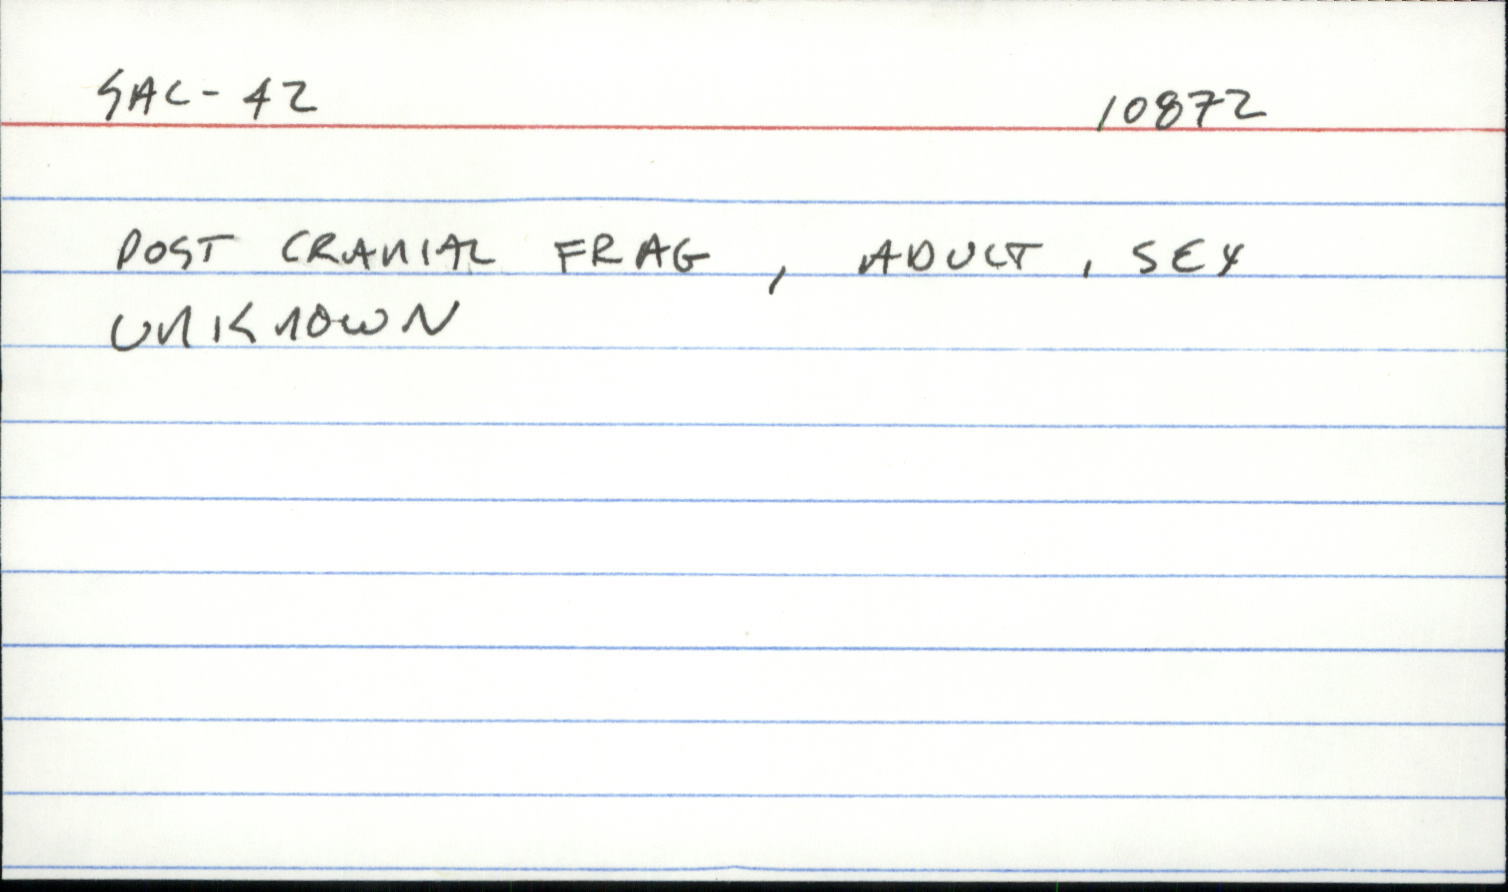 SAC-42
10872
POST CRANIAL FRAG, ADULT, SEX
UNKNOWN